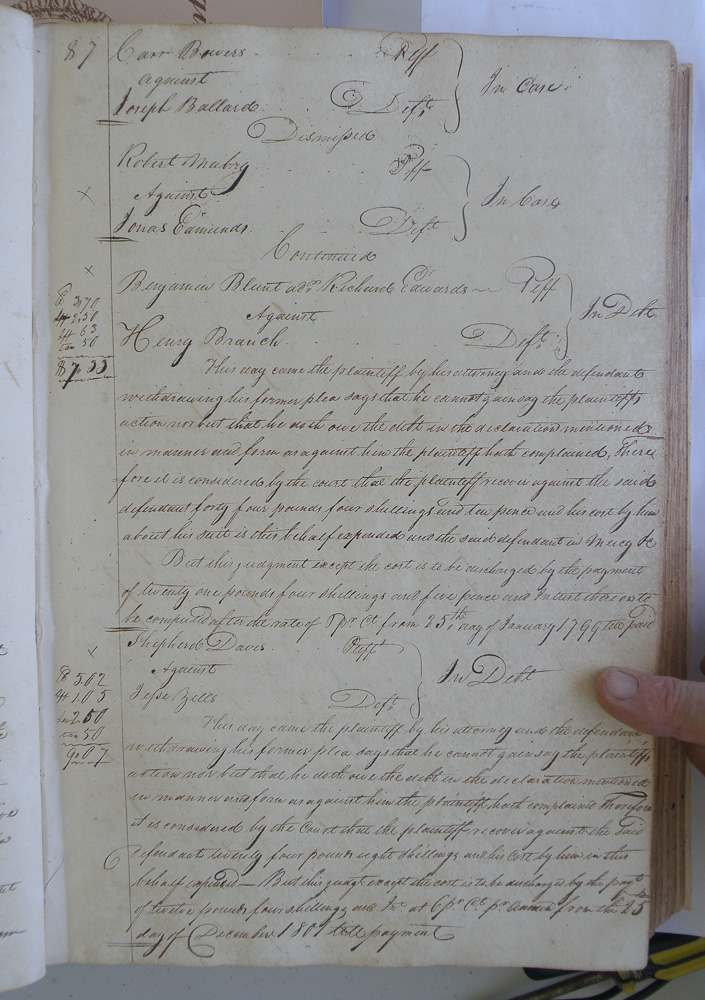 87 Carr Bowers Plff
against In Case
Joseph Ballard Deft
Dismissed
Robert Mabry Plff
Against In Case
Jonas Edmunds Deft
Continued
Benjamin Blunt admr Richard Edwards Plff
Against In Debt
Henry Branch Deft
This day came the plaintiff by his attorney and the defendant
withdrawing his former plea says that he cannot gainsay the plaintiffs
action nor but that he doth owe the debt in the declaration mentioned
in manner and form as against him the plaintiff hath complained, There
fore it is considered by the court that the plaintiff recover against the said
defendant forty four pounds four shillings and ten pence and his cost by him
about his suit in this behalf expended and the said defendant in Mercy &c
But this judgment except the cost is to be discharged by the payment
of twenty one pounds four shillings and five pence and Intrest thereon to
be computed after the rate of 5 pr Ct from 25th day of January 1799 till paid
Shepherd Davis Plaff
Against In Debt
Jesse Bells Deft
This day came the plaintiff by his attorney and the defendant
withdrawing his former plea says that he cannot gainsay the plaintiffs
action nor but that he doth owe the debt in the declaration mentioned
in manner and form as against him the plaintiff hath complaind Therefore
it is considered by the Court that the plaintiff recover against the said
defendant twenty four pounds eight shillings and his Cost by him in this
behalf expended — But this judgt except the cost is to be discharged by the paymt
of twelve pounds four shillings and Int at 6 pr Ct pr annum from the 25
day of December 1801 till payment
3.70
2.50
63
50
87.33
5.02
1.05
2.50
50
9.07